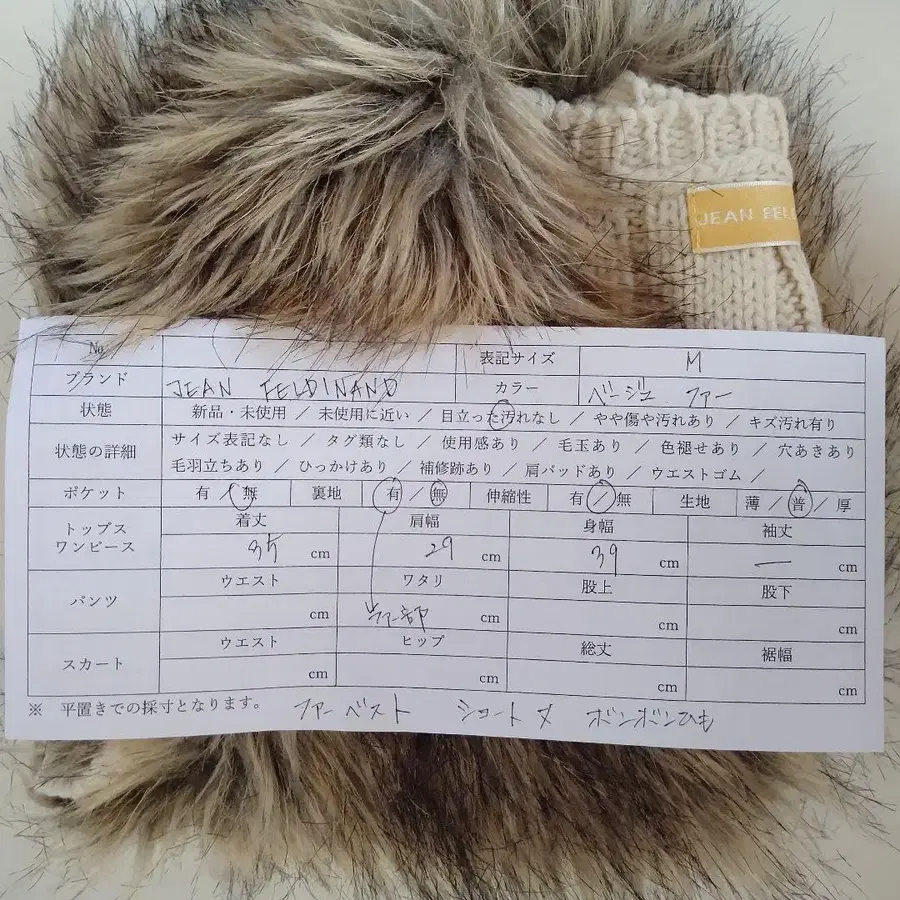 JEAN FEL
No. 表記サイズ M
ブランド JEAN FELDINAND カラー ベージュ ファー
状態 新品・未使用 / 未使用に近い / 目立った汚れなし / やや傷や汚れあり / キズ汚れ有り
状態の詳細 サイズ表記なし / タグ類なし / 使用感あり / 毛玉あり / 色褪せあり / 穴あきあり
毛羽立ちあり / ひっかけあり / 補修跡あり / 肩パッドあり / ウエストゴム /
ポケット 有 / 無 裏地 有 / 無 伸縮性 有 / 無 生地 薄 / 普 / 厚
トップス ワンピース 着丈 肩幅 身幅 袖丈
35 cm 29 cm 39 cm — cm
パンツ ウエスト ワタリ 股上 股下
cm ファー部 cm cm cm
スカート ウエスト ヒップ 総丈 裾幅
cm cm cm cm
※ 平置きでの採寸となります。 ファーベスト ショート丈 ボンボンひも